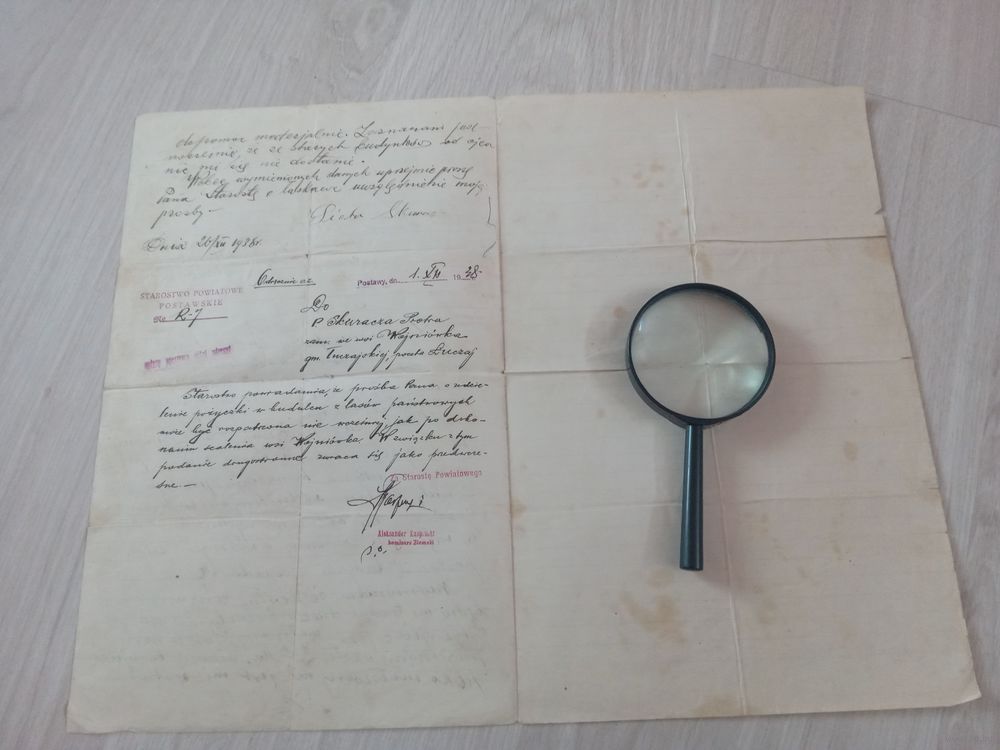 dopomóż materjalnie. Zaznaczam pod
że ze starych budynków od ojca
nic mi się nie dostanie.
Wobec wymienionych danych uprzejmie proszę
Pana Starostę o łaskawe uwzględnienie mojej
prośby.
Piotr
Dnia 26/XII 1938r.
STAROSTWO POWIATOWE
POSTAWSKIE
No R-7
Odręcznie
Postawy, dn. 1. 1938
Do
P. Skuracza Piotra
zam. we wsi Wojniówka
gm. Tuczajskiej, poczta Łuczaj
Starostwo powiadamia, że prośba Pana o udzie-
lenie pożyczki w budulcu z lasów państwowych
może być rozpatrzona nie wcześniej, jak po doko-
naniu scalenia wsi Wojniówka. W związku z tym
podanie zwraca się jako przedwcze-
sne.—
Za Starostę Powiatowego
Aleksander
komisarz Ziemski